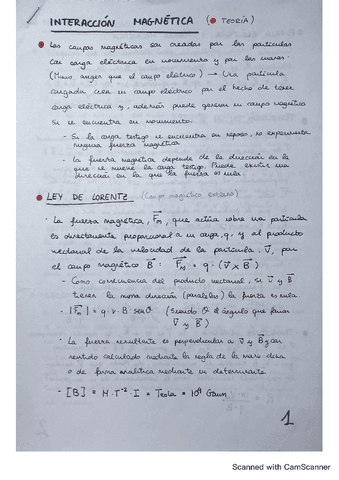 INTERACCIÓN MAGNÉTICA (● TEORÍA)
● Los campos magnéticos son creados por las partículas
con carga eléctrica en movimiento y por las imanes.
(Mismo origen que el campo eléctrico) → Una partícula
cargada crea un campo eléctrico por el hecho de tener
carga eléctrica y, además puede generar un campo magnético
si se encuentra en movimiento.
- Si la carga testigo se encuentra en reposo, no experimenta
ninguna fuerza magnética
- La fuerza magnética depende de la dirección en la
que se mueve la carga testigo. Puede existir una
dirección en la que la fuerza es nula.
● LEY DE LORENTZ (Campo magnético externo)
· La fuerza magnética, Fm, que actúa sobre una partícula
es directamente proporcional a su carga, q, y al producto
vectorial de la velocidad de la partícula, v, por
el campo magnético B: Fm = q · (v × B)
- Como consecuencia del producto vectorial, si v y B
tienen la misma dirección (paralelas) la fuerza es nula.
- |Fm| = q · v · B · senθ (siendo θ el ángulo que forman
v y B)
- La fuerza resultante es perpendicular a v y B y con
sentido calculado mediante la regla de la mano dcha
o de forma analítica mediante un determinante.
- [B] = M · T⁻² · I = Tesla = 10⁴ Gauss
1
Scanned with CamScanner